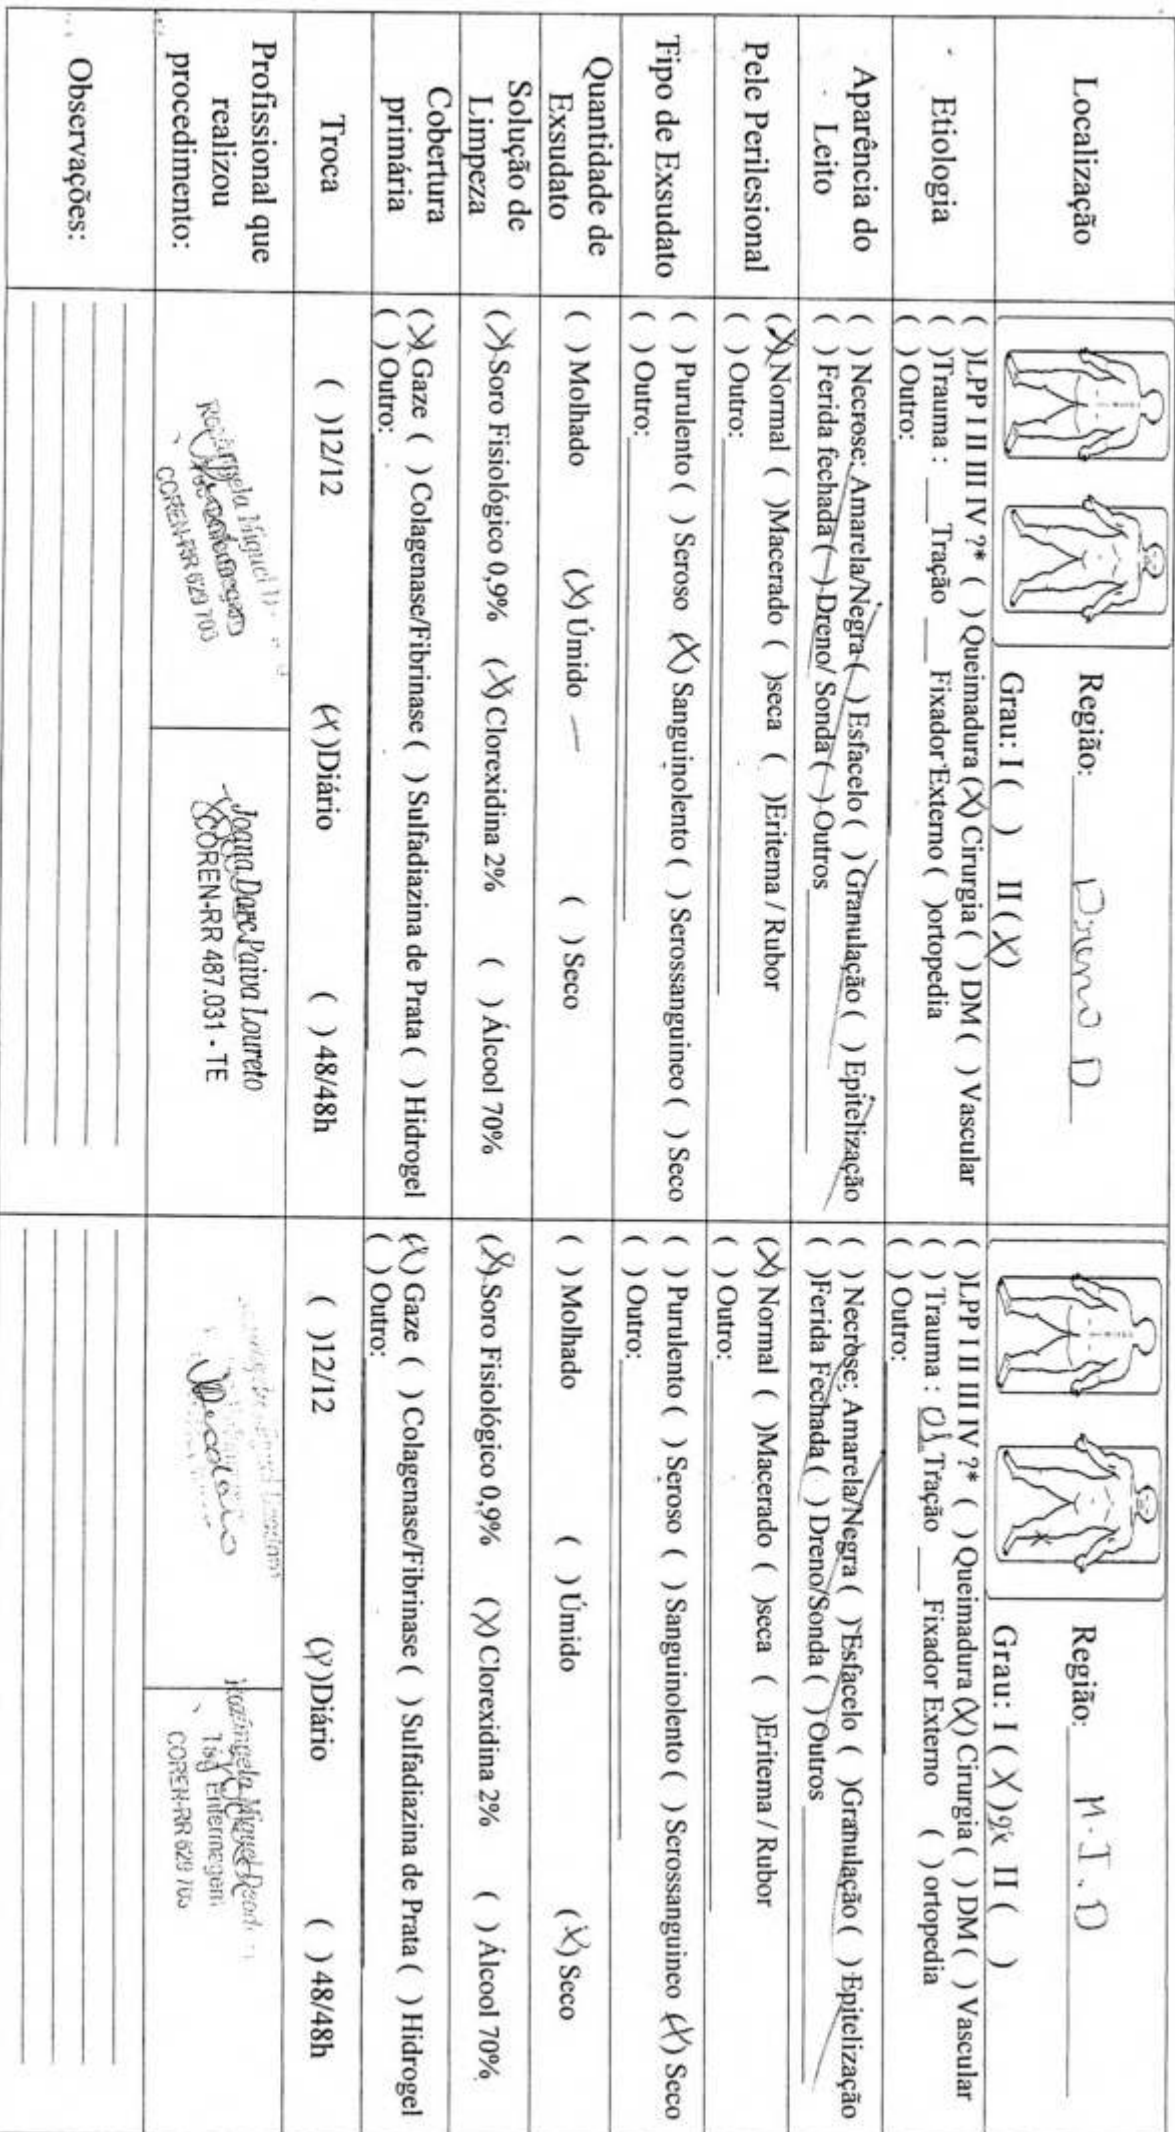 Localização
Região: Dreno D
Grau: I ( ) II (X)
Região: M.I.D
Grau: I (X) II ( )
Etiologia
( )LPP I II III IV ?* ( )Queimadura (X) Cirurgia ( ) DM ( ) Vascular
( )Trauma : ___ Tração ___ Fixador Externo ( )ortopedia
( ) Outro:
( )LPP I II III IV ?* ( )Queimadura (X) Cirurgia ( ) DM ( ) Vascular
( ) Trauma : 01 Tração ___ Fixador Externo ( ) ortopedia
( ) Outro:
Aparência do
Leito
( ) Necrose: Amarela/Negra ( ) Esfacelo ( ) Granulação ( ) Epitelização
( ) Ferida fechada ( ) Dreno/ Sonda ( ) Outros
( ) Necrose: Amarela/Negra ( ) Esfacelo ( )Granulação ( ) Epitelização
( )Ferida Fechada ( ) Dreno/Sonda ( ) Outros
Pele Perilesional
(X) Normal ( )Macerado ( )seca ( )Eritema / Rubor
( ) Outro:
(X) Normal ( )Macerado ( )seca ( )Eritema / Rubor
( ) Outro:
Tipo de Exsudato
( ) Purulento ( ) Seroso (X) Sanguinolento ( ) Serossanguineo ( ) Seco
( ) Outro:
( ) Purulento ( ) Seroso ( ) Sanguinolento ( ) Serossanguineo (X) Seco
( ) Outro:
Quantidade de
Exsudato
( ) Molhado (X) Úmido ( ) Seco
( ) Molhado ( ) Úmido (X) Seco
Solução de
Limpeza
(X) Soro Fisiológico 0,9% (X) Clorexidina 2% ( ) Álcool 70%
(X) Soro Fisiológico 0,9% (X) Clorexidina 2% ( ) Álcool 70%
Cobertura
primária
(X) Gaze ( ) Colagenase/Fibrinase ( ) Sulfadiazina de Prata ( ) Hidrogel
( ) Outro:
(X) Gaze ( ) Colagenase/Fibrinase ( ) Sulfadiazina de Prata ( ) Hidrogel
( ) Outro:
Troca
( )12/12 (X)Diário ( ) 48/48h
( )12/12 (X)Diário ( ) 48/48h
Profissional que
realizou
procedimento:
Rosângela Miguel
COREN-RR 629 703
Joana Darc Paiva Loureto
COREN-RR 487.031 - TE
Rosângela Miguel
Téc Enfermagem
COREN-RR 629 703
Observações: